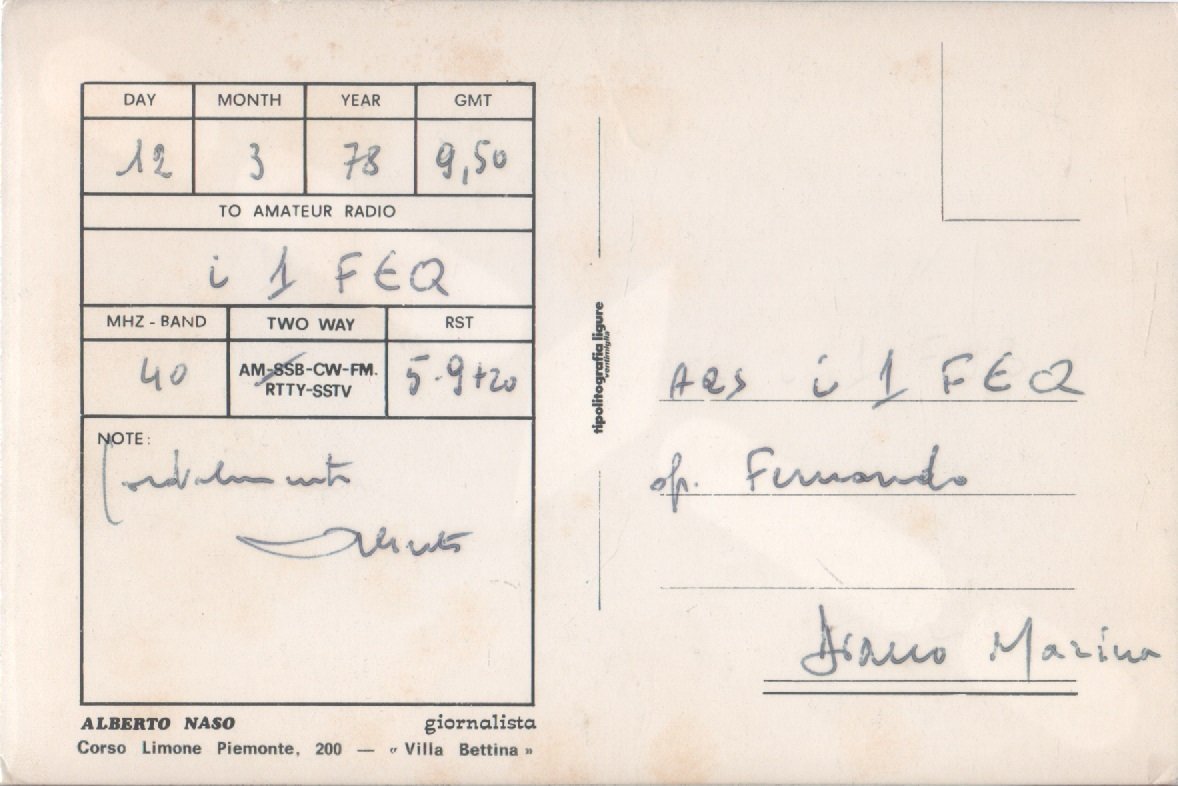 DAY MONTH YEAR GMT
12 3 78 9,50
TO AMATEUR RADIO
i 1 FEQ
MHZ - BAND TWO WAY RST
40 AM-SSB-CW-FM. 5-9+20
RTTY-SSTV
NOTE:
Cordialmente
Alberto
ALBERTO NASO giornalista
Corso Limone Piemonte, 200 — « Villa Bettina »
tipolitografia ligure
ventimiglia
ARS i 1 FEQ
op. Fernando
Diano Marina